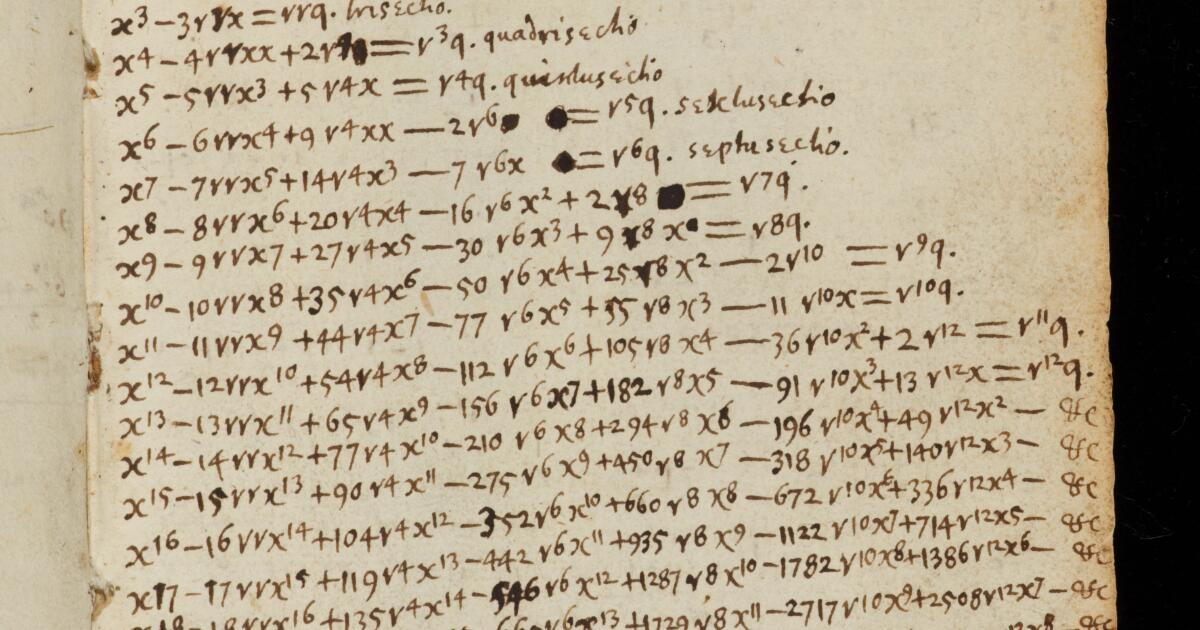 x3 — 3rrx = rrq. trisectio.
x4 — 4rrxx + 2r4 = r3q. quadrisectio
x5 — 5rrx3 + 5r4x = r4q. quintusectio
x6 — 6rrx4 + 9r4xx — 2r6 = r5q. sextusectio
x7 — 7rrx5 + 14r4x3 — 7r6x = r6q. septusectio.
x8 — 8rrx6 + 20r4x4 — 16r6x2 + 2r8 = r7q.
x9 — 9rrx7 + 27r4x5 — 30r6x3 + 9r8x = r8q.
x10 — 10rrx8 + 35r4x6 — 50r6x4 + 25r8x2 — 2r10 = r9q.
x11 — 11rrx9 + 44r4x7 — 77r6x5 + 55r8x3 — 11r10x = r10q.
x12 — 12rrx10 + 54r4x8 — 112r6x6 + 105r8x4 — 36r10x2 + 2r12 = r11q.
x13 — 13rrx11 + 65r4x9 — 156r6x7 + 182r8x5 — 91r10x3 + 13r12x = r12q.
x14 — 14rrx12 + 77r4x10 — 210r6x8 + 294r8x6 — 196r10x4 + 49r12x2 — &c
x15 — 15rrx13 + 90r4x11 — 275r6x9 + 450r8x7 — 318r10x5 + 140r12x3 — &c
x16 — 16rrx14 + 104r4x12 — 352r6x10 + 660r8x8 — 672r10x6 + 336r12x4 — &c
x17 — 17rrx15 + 119r4x13 — 442r6x11 + 935r8x9 — 1122r10x7 + 714r12x5 — &c
x18 — 18rrx16 + 135r4x14 — 546r6x12 + 1287r8x10 — 1782r10x8 + 1386r12x6 — &c
r6x13 + 1729r8x11 — 2717r10x9 + 2508r12x7 — &c